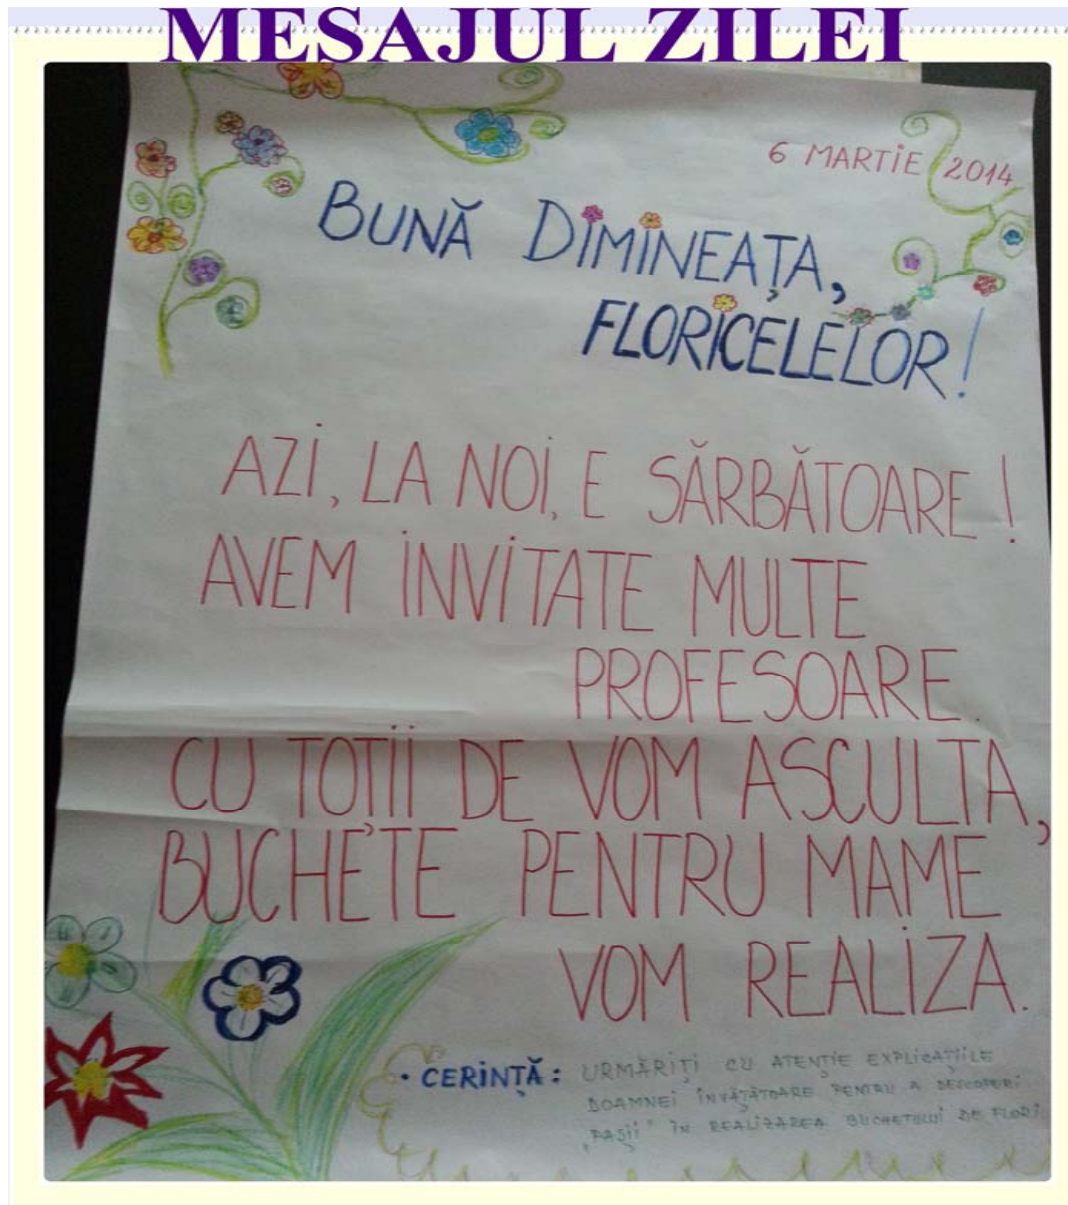 MESAJUL ZILEI
6 MARTIE 2014
BUNĂ DIMINEAȚA,
FLORICELELOR!
AZI, LA NOI, E SĂRBĂTOARE!
AVEM INVITATE MULTE
PROFESOARE.
CU TOȚII DE VOM ASCULTA,
BUCHETE PENTRU MAME
VOM REALIZA.
• CERINȚĂ: URMĂRIȚI CU ATENȚIE EXPLICAȚIILE
DOAMNEI ÎNVĂȚĂTOARE PENTRU A DESCOPERI
„PAȘII" ÎN REALIZAREA BUCHETULUI DE FLORI